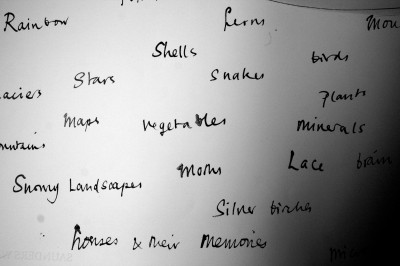 Rainbow ferns Mou
Shells birds
Stars Snakes
aciers Plants
Maps Vegetables Minerals
ountains
Moths Lace brain
Snowy Landscapes
Silver birches
houses & their memories